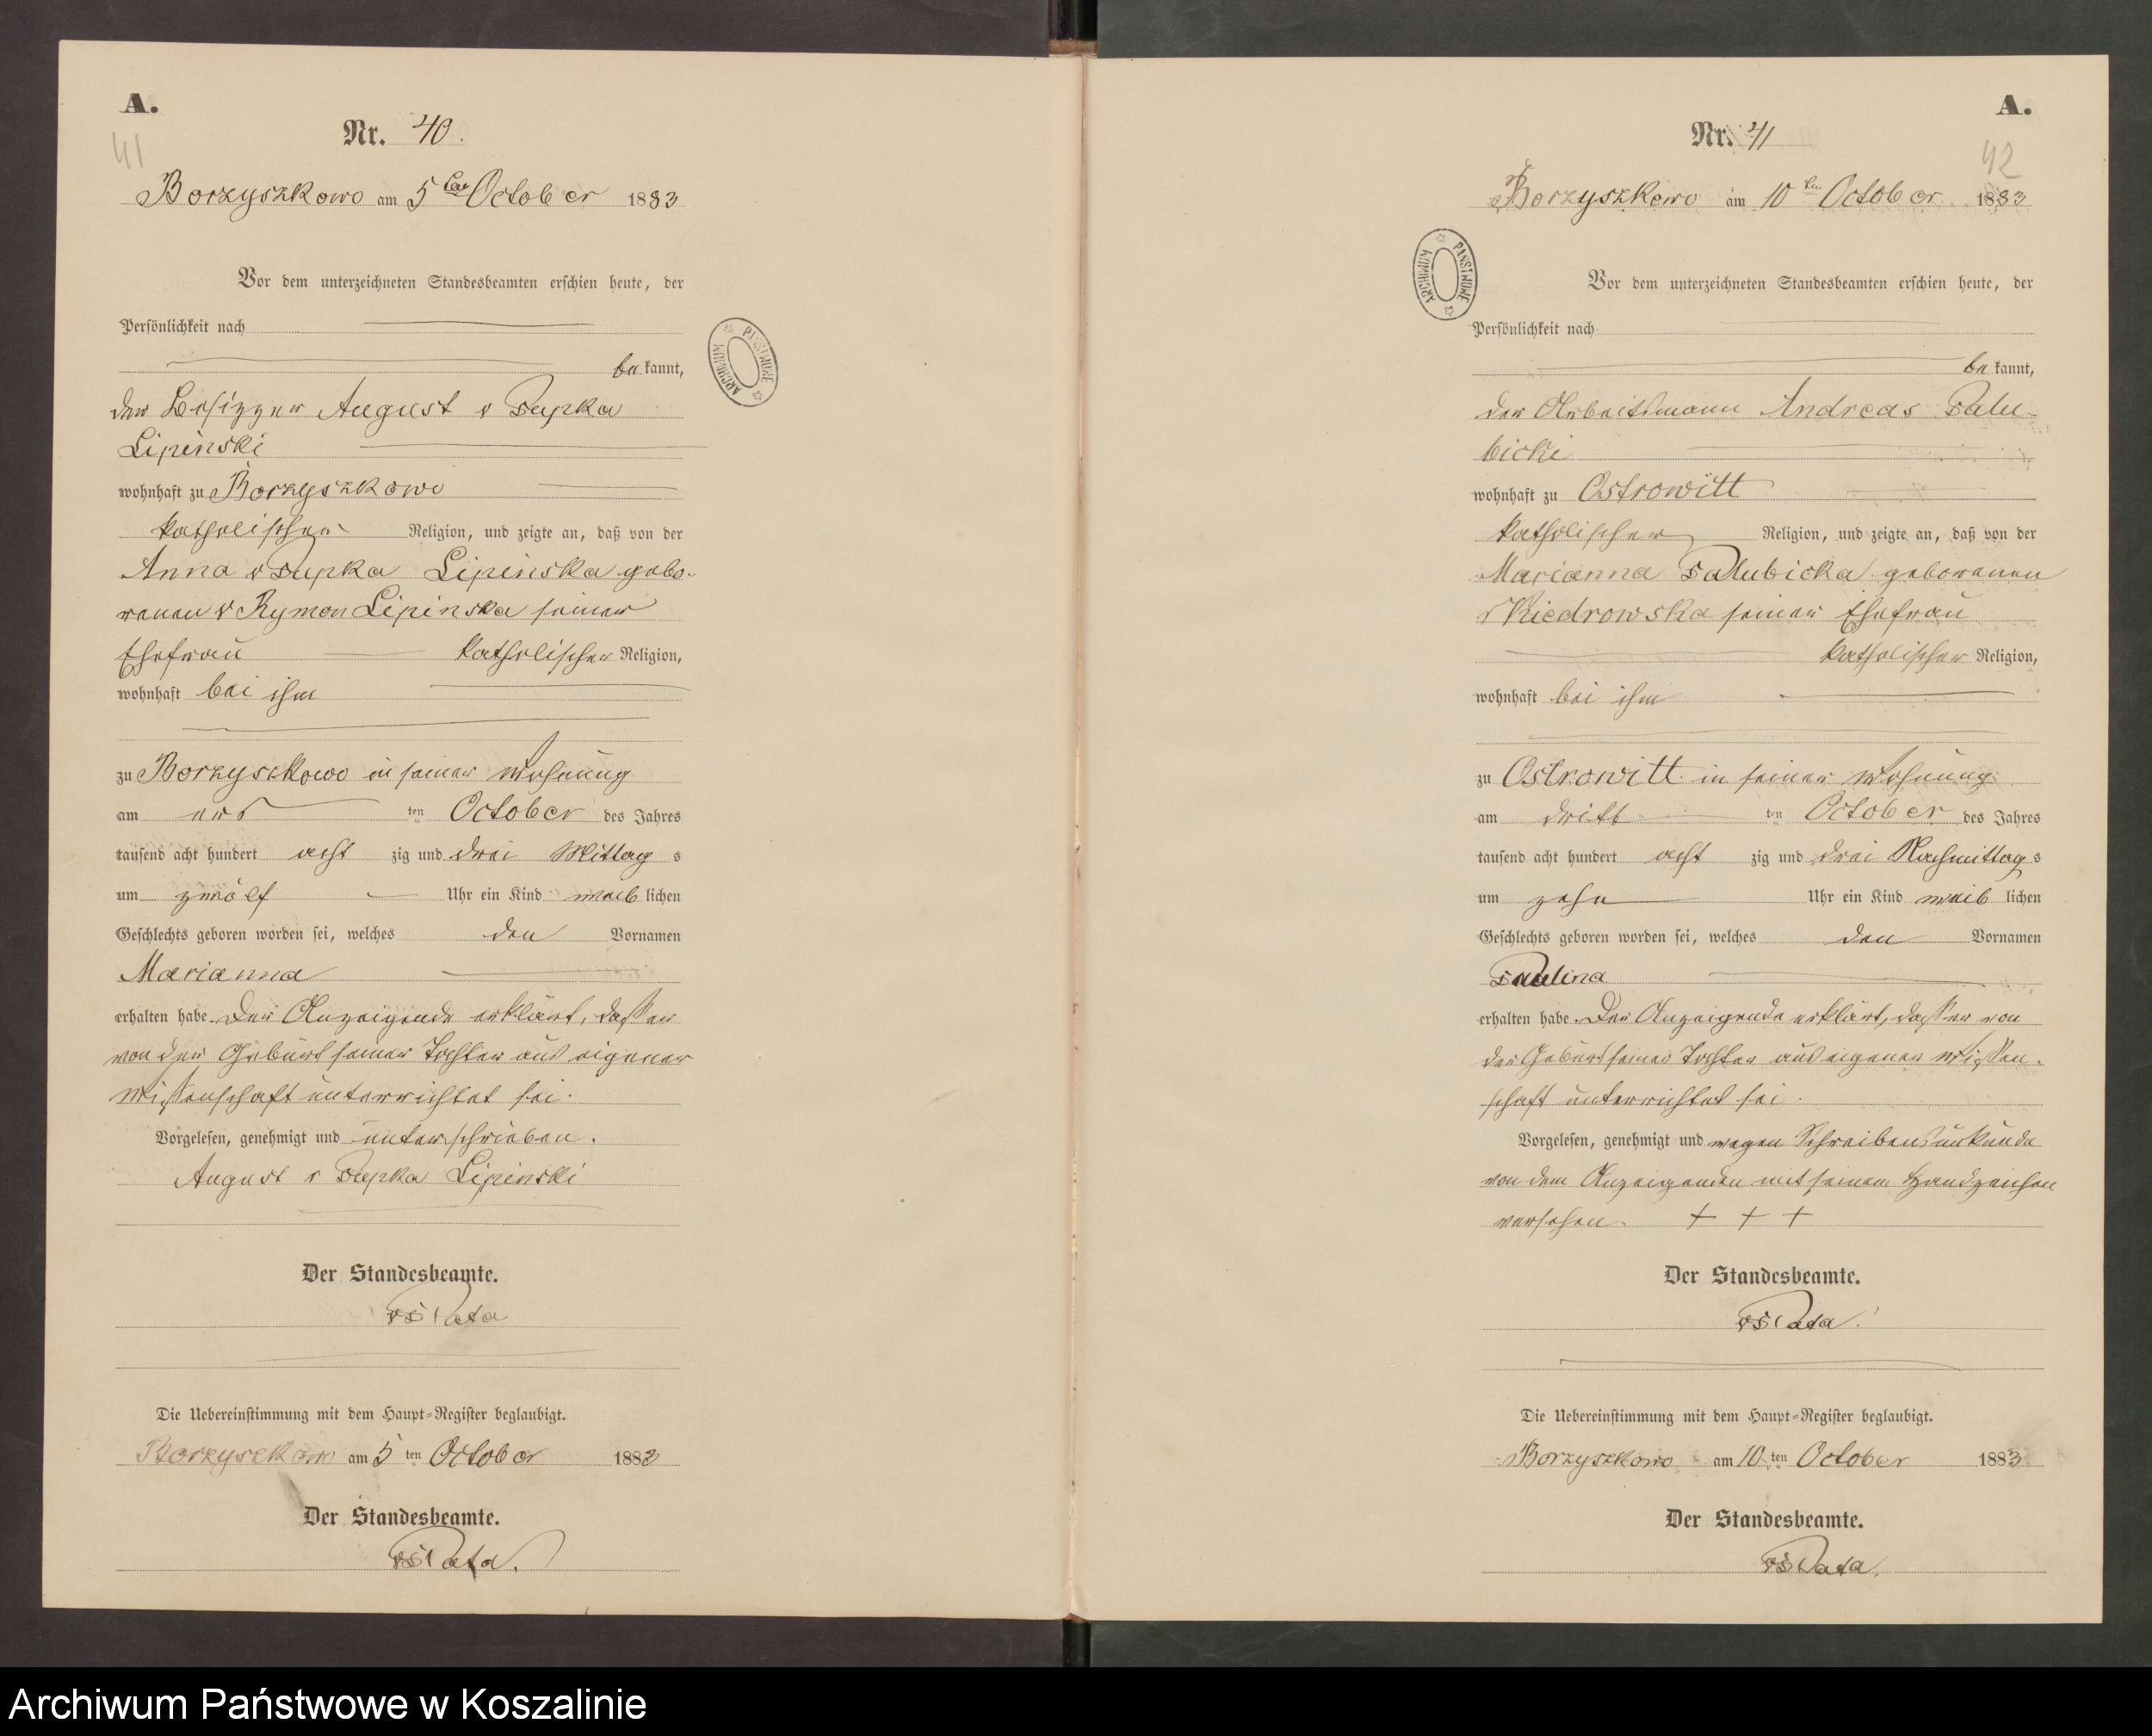 A.
41
Nr. 40.
Borzyszkowo am 5ten October 1883
Vor dem unterzeichneten Standesbeamten erschien heute, der
Persönlichkeit nach
be kannt,
der Besitzer August v Pupka
Lipinski
wohnhaft zu Borzyszkowo
katholischer Religion, und zeigte an, daß von der
Anna v Pupka Lipinska gebo-
renen v Rymon Lipinska seiner
Ehefrau katholischer Religion,
wohnhaft bei ihm
zu Borzyszkowo in seiner Wohnung
am ers ten October des Jahres
tausend acht hundert acht zig und drei Mittag s
um zwölf Uhr ein Kind weib lichen
Geschlechts geboren worden sei, welches den Vornamen
Marianna
erhalten habe. Der Anzeigende erklärt, daß er
von der Geburt seiner Tochter aus eigener
Wissenschaft unterrichtet sei.
Vorgelesen, genehmigt und unterschrieben.
August v Pupka Lipinski
Der Standesbeamte.
Pata
Die Uebereinstimmung mit dem Haupt-Register beglaubigt.
Borzyszkowo am 5 ten October 1883
Der Standesbeamte.
Pata.
A.
42
Nr. 41
Borzyszkowo am 10ten October 1883
Vor dem unterzeichneten Standesbeamten erschien heute, der
Persönlichkeit nach
be kannt,
der Arbeitsmann Andreas Palu-
bicki
wohnhaft zu Ostrowitt
katholischer Religion, und zeigte an, daß von der
Marianna Palubicka geborenen
v Kiedrowska seiner Ehefrau
katholischer Religion,
wohnhaft bei ihm
zu Ostrowitt in seiner Wohnung
am dritt ten October des Jahres
tausend acht hundert acht zig und drei Nachmittag s
um zehn Uhr ein Kind weib lichen
Geschlechts geboren worden sei, welches den Vornamen
Paulina
erhalten habe. Der Anzeigende erklärt, daß er von
der Geburt seiner Tochter aus eigener Wissen-
schaft unterrichtet sei.
Vorgelesen, genehmigt und wegen Schreibensunkunde
von dem Anzeigenden mit seinem Handzeichen
versehen. + + +
Der Standesbeamte.
Pata.
Die Uebereinstimmung mit dem Haupt-Register beglaubigt.
Borzyszkowo am 10 ten October 1883
Der Standesbeamte.
Pata.
ARCHIWUM PAŃSTWOWE
ARCHIWUM PAŃSTWOWE
Archiwum Państwowe w Koszalinie